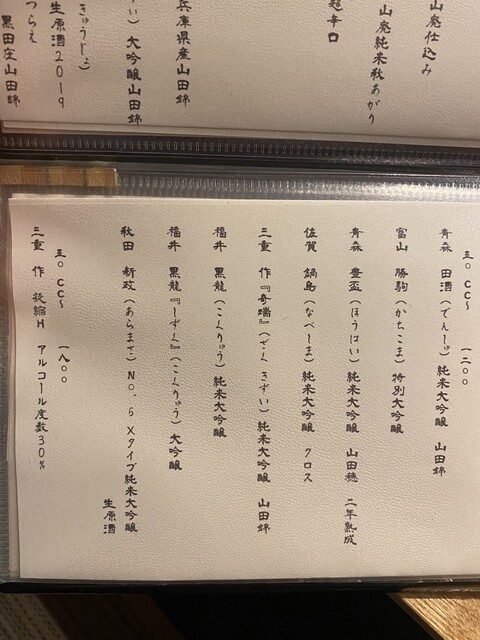 山廃仕込み
山廃純米秋あがり
超辛口
兵庫県産山田錦
ずい）大吟醸山田錦
きゅうじょ）
生原酒2019
つらえ
黒田庄山田錦
五〇CC〜　一二〇〇
青森　田酒（でんしゅ）純米大吟醸　山田錦
富山　勝駒（かちこま）特別大吟醸
青森　豊盃（ほうはい）純米大吟醸　山田穂　二年熟成
佐賀　鍋島（なべしま）純米大吟醸　クロス
三重　作『奇瑞』（ざく きずい）純米大吟醸　山田錦
福井　黒龍（こくりゅう）純米大吟醸
福井　黒龍『しずく』（こくりゅう）大吟醸
秋田　新政（あらまさ）No.6 Xタイプ純米大吟醸
生原酒
五〇CC〜　一八〇〇
三重　作　凝縮H　アルコール度数30%